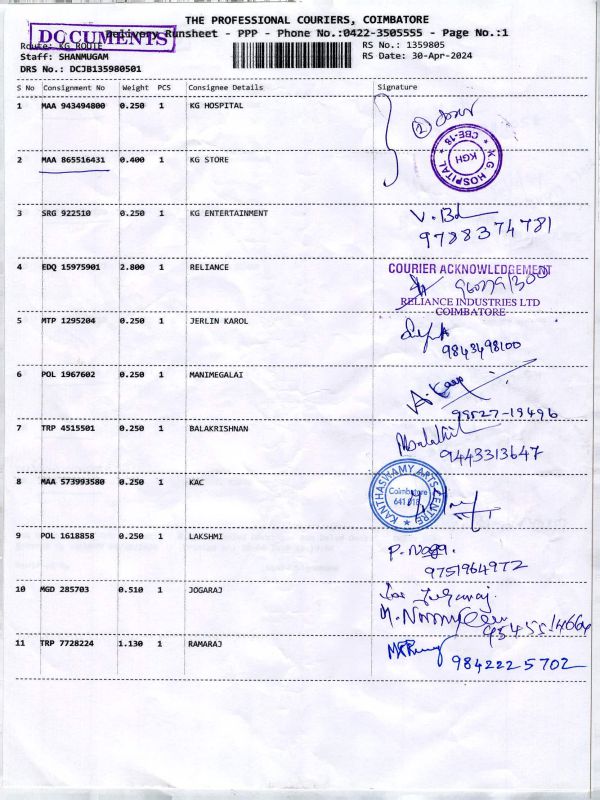 THE PROFESSIONAL COURIERS, COIMBATORE
DOCUMENTS
Delivery Runsheet - PPP - Phone No.:0422-3505555 - Page No.:1
Route: KG ROUTE
RS No.: 1359805
Staff: SHANMUGAM
RS Date: 30-Apr-2024
DRS No.: DCJB135980501
S No Consignment No Weight PCS Consignee Details Signature
1 MAA 943494800 0.250 1 KG HOSPITAL
K G HOSPITAL
CBE-18
KGH
2 MAA 865516431 0.400 1 KG STORE
3 SRG 922510 0.250 1 KG ENTERTAINMENT
9788374781
4 EDQ 15975901 2.800 1 RELIANCE
COURIER ACKNOWLEDGEMENT
RELIANCE INDUSTRIES LTD
COIMBATORE
5 MTP 1295204 0.250 1 JERLIN KAROL
9843498100
6 POL 1967602 0.250 1 MANIMEGALAI
99527-19496
7 TRP 4515501 0.250 1 BALAKRISHNAN
9443313647
8 MAA 573993580 0.250 1 KAC
KANTHASWAMY ARTS CENTRE
Coimbatore
641 018
9 POL 1618858 0.250 1 LAKSHMI
P. Naga.
9751964972
10 MGD 285703 0.510 1 JOGARAJ
11 TRP 7728224 1.130 1 RAMARAJ
9842225702